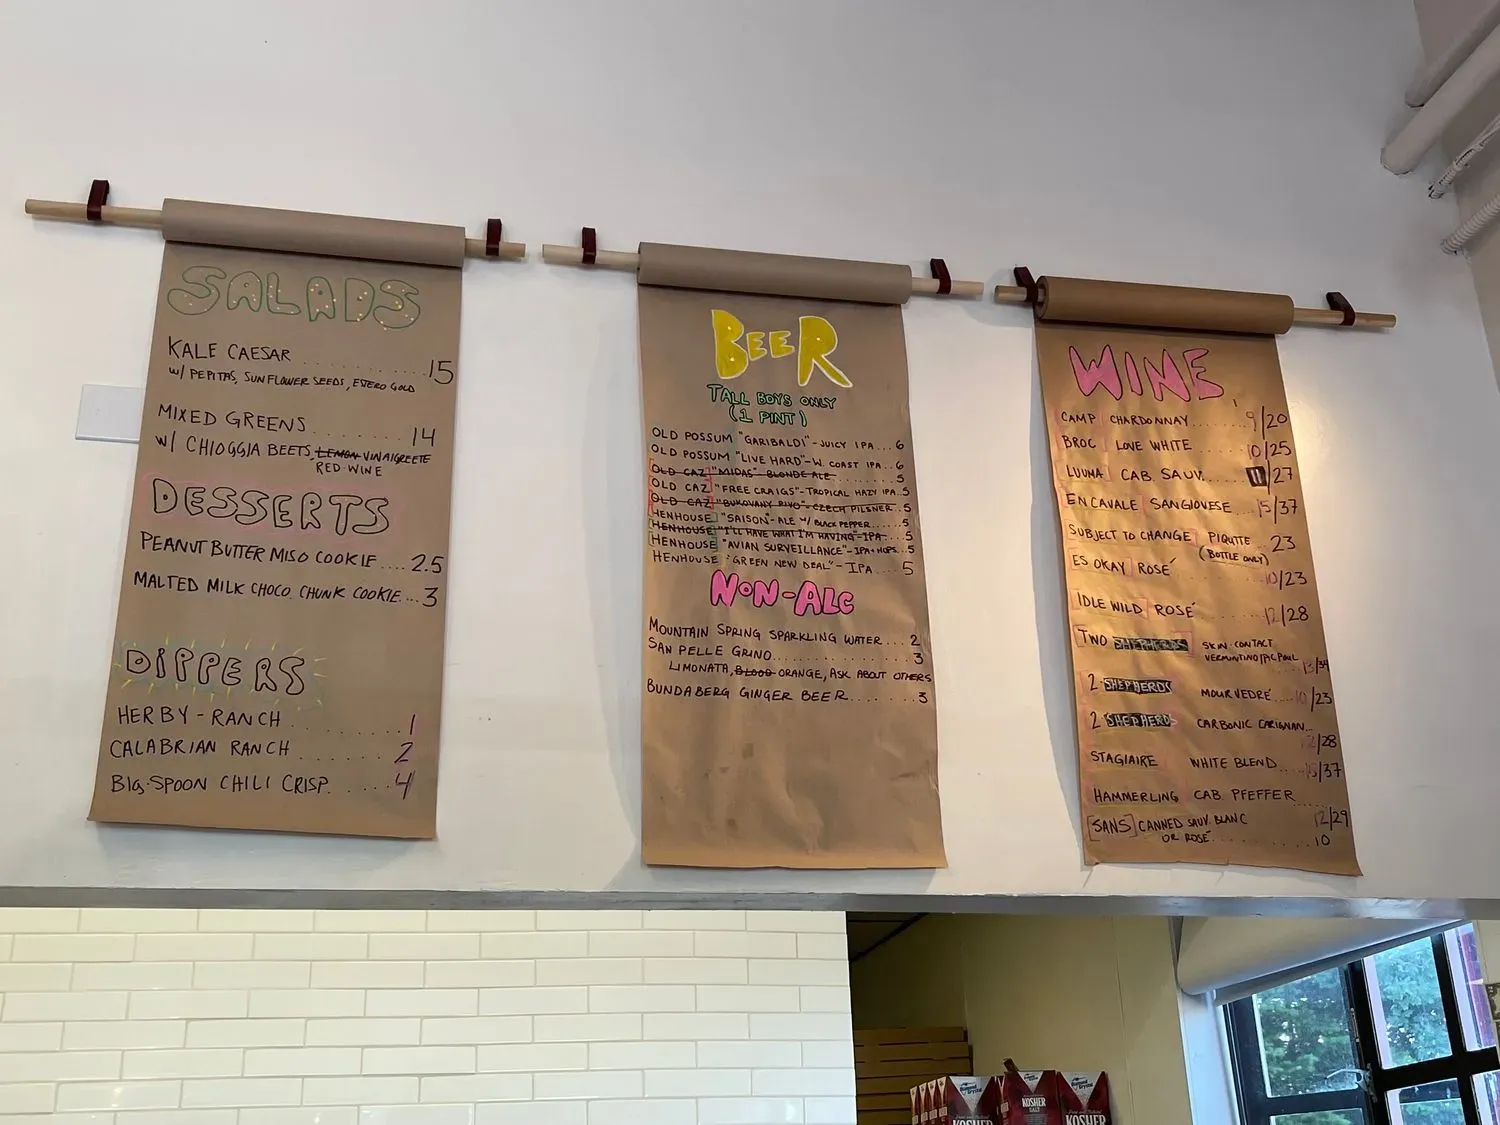 SALADS
KALE CAESAR ........ 15
W/ PEPITAS, SUNFLOWER SEEDS, ESTERO GOLD
MIXED GREENS ........ 14
W/ CHIOGGIA BEETS, LEMON VINAIGREETE
RED WINE
DESSERTS
PEANUT BUTTER MISO COOKIE .... 2.5
MALTED MILK CHOCO. CHUNK COOKIE... 3
DIPPERS
HERBY-RANCH ........ 1
CALABRIAN RANCH ...... 2
BIG-SPOON CHILI CRISP. ..... 4
BEER
TALL BOYS ONLY
(1 PINT)
OLD POSSUM "GARIBALDI"-JUICY IPA... 6
OLD POSSUM "LIVE HARD"-W. COAST IPA.. 6
OLD CAZ "MIDAS" BLONDE ALE ..... 5
OLD CAZ "FREE CRAIGS"-TROPICAL HAZY IPA. 5
OLD CAZ "BUKOVANY PIVO"-CZECH PILSNER. 5
HENHOUSE "SAISON"-ALE W/ BLACK PEPPER...... 5
HENHOUSE "I'LL HAVE WHAT I'M HAVING"-IPA.. 5
HENHOUSE "AVIAN SURVEILLANCE"-IPA+HOPS.. 5
HENHOUSE "GREEN NEW DEAL"-IPA .... 5
NON-ALC
MOUNTAIN SPRING SPARKLING WATER... 2
SAN PELLE GRINO.............. 3
LIMONATA, BLOOD ORANGE, ASK ABOUT OTHERS
BUNDABERG GINGER BEER........ 3
WINE
CAMP CHARDONNAY ...... 9/20
BROC LOVE WHITE ...... 10/25
LUUMA CAB. SAUV...... 11/27
ENCAVALE SANGIOVESE .... 15/37
SUBJECT TO CHANGE PIQUTTE ... 23
(BOTTLE ONLY)
ES OKAY ROSÉ ...... 10/23
IDLE WILD ROSÉ ....... 12/28
TWO SHEPHERDS SKIN CONTACT
VERMINTINO/PIC POUL
13/34
2 SHEPHERDS MOURVEDRE .. 10/23
2 SHEPHERDS CARBONIC CARIGNAN...
12/28
STAGIAIRE WHITE BLEND.... 15/37
HAMMERLING CAB. PFEFFER ....
12/29
[SANS] CANNED SAUV. BLANC
OR ROSÉ ........... 10
KOSHER
SALT
KOSHER
KOSHER